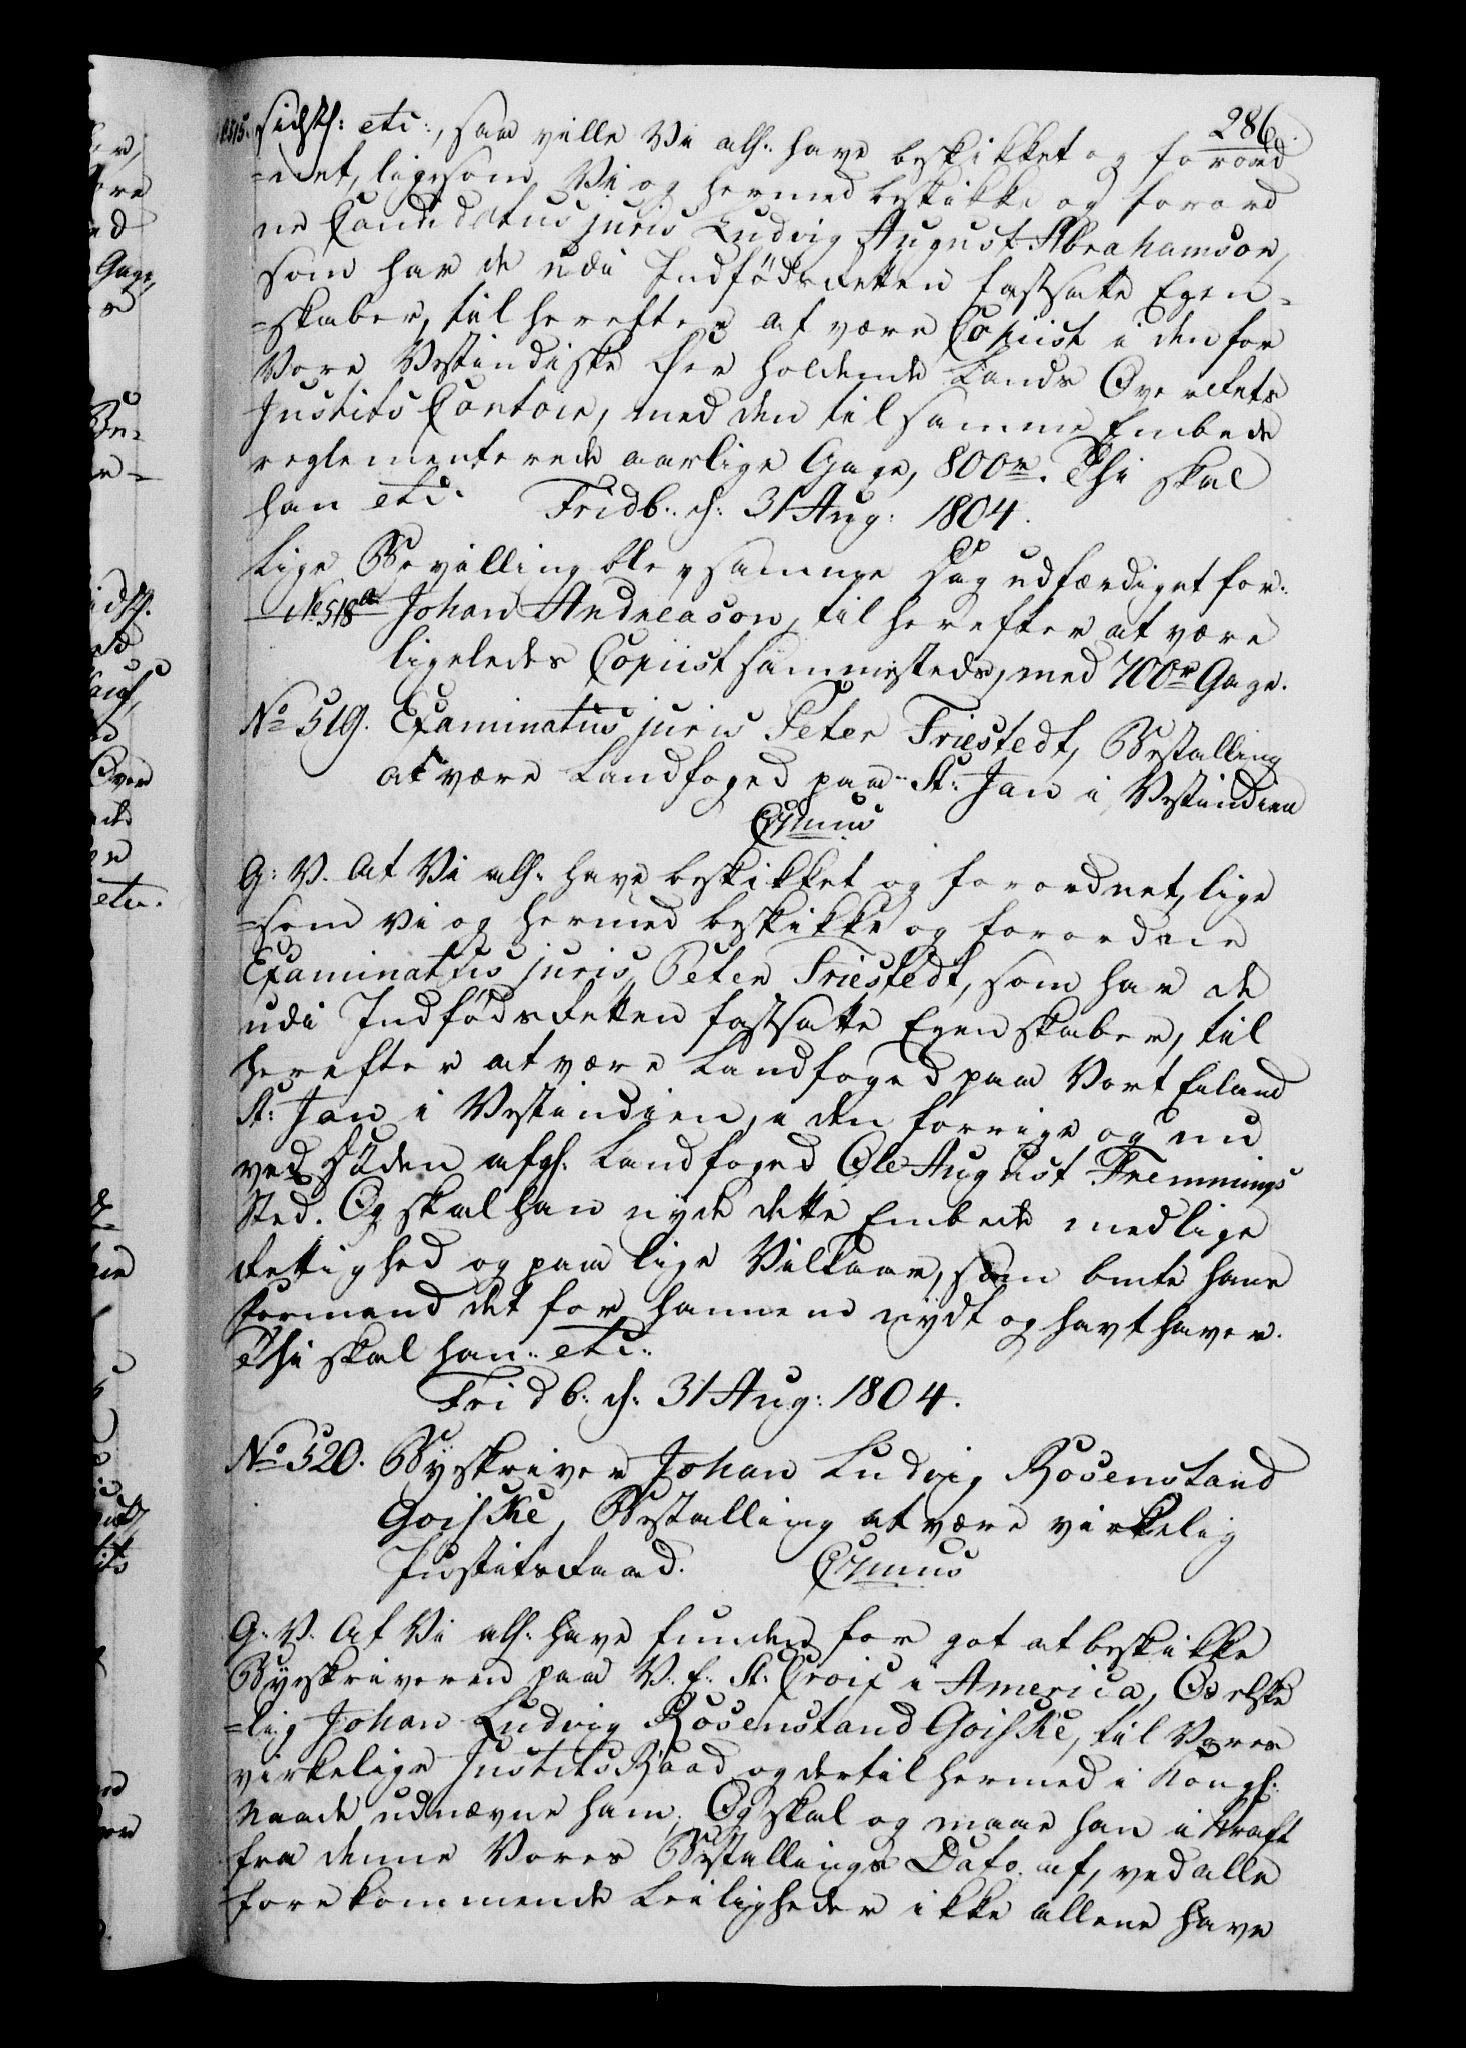 286.
sichts: etc:, saa ville Vi alh: have beskikket og forord
=net, ligesom Vi og hermed beskikke og forord
ne Candidatus juris Ludvig August Abrahamson,
som har de udi Indfödsretten fastsatte Egen=
=skaber, til herefter at være Copiist i den for
Vore Vestindiske Öer holdende Lands Overrets
Justits Contoir, med den til samme Embede
reglementerede aarlige Gage, 800r. Thi skal
han etc. Fridb: d: 31 Aug: 1804.
Lige Bevilling blev samme Dag udfærdiget for:
No 518a Johan Andreason, til herefter at være
ligeledes Copiist sammesteds, med 700r Gage.
No 519. Examinatus juris Peter Friestedt, Bestalling
at være Landfoged paa St: Jan i Vestindien
G: V. At Vi alh: have beskikket og forordnet, lige
=som Vi og hermed beskikke og forordne
Examinatus juris Peter Friestedt, som har de
udi Indfödsretten fastsatte Egenskaber, til
herefter at være Landfoged paa Vort Eiland
St: Jan i Vestindien, i den forrige og nu
ved Döden afg: Landfoged Ole August Flemmings
Sted. Og skal han nyde dette Embede med lige
Rettighed og paa lige Vilkaar, som bemte hans
Formand det for hannem nydt og havt haver.
Thi skal han: etc:
Fridb: d: 31 Aug: 1804.
No 520. Byskriver Johan Ludvig Rosenstand
Goiske, Bestalling at være virkelig
Justitsraad.
G: V. At Vi alh: have funden for got at beskikke
Byeskriveren paa V. E. St: Croix i America, Os elske
=lig Johan Ludvig Rosenstand Goiske, til Vores
virkelige Justits Raad og dertil hermed i Kongl:
Naade udnævne ham; Og skal og maae han i Kraft
fra denne Vores Bestallings Dato af, ved alle
forekommende Leiligheder ikke allene have